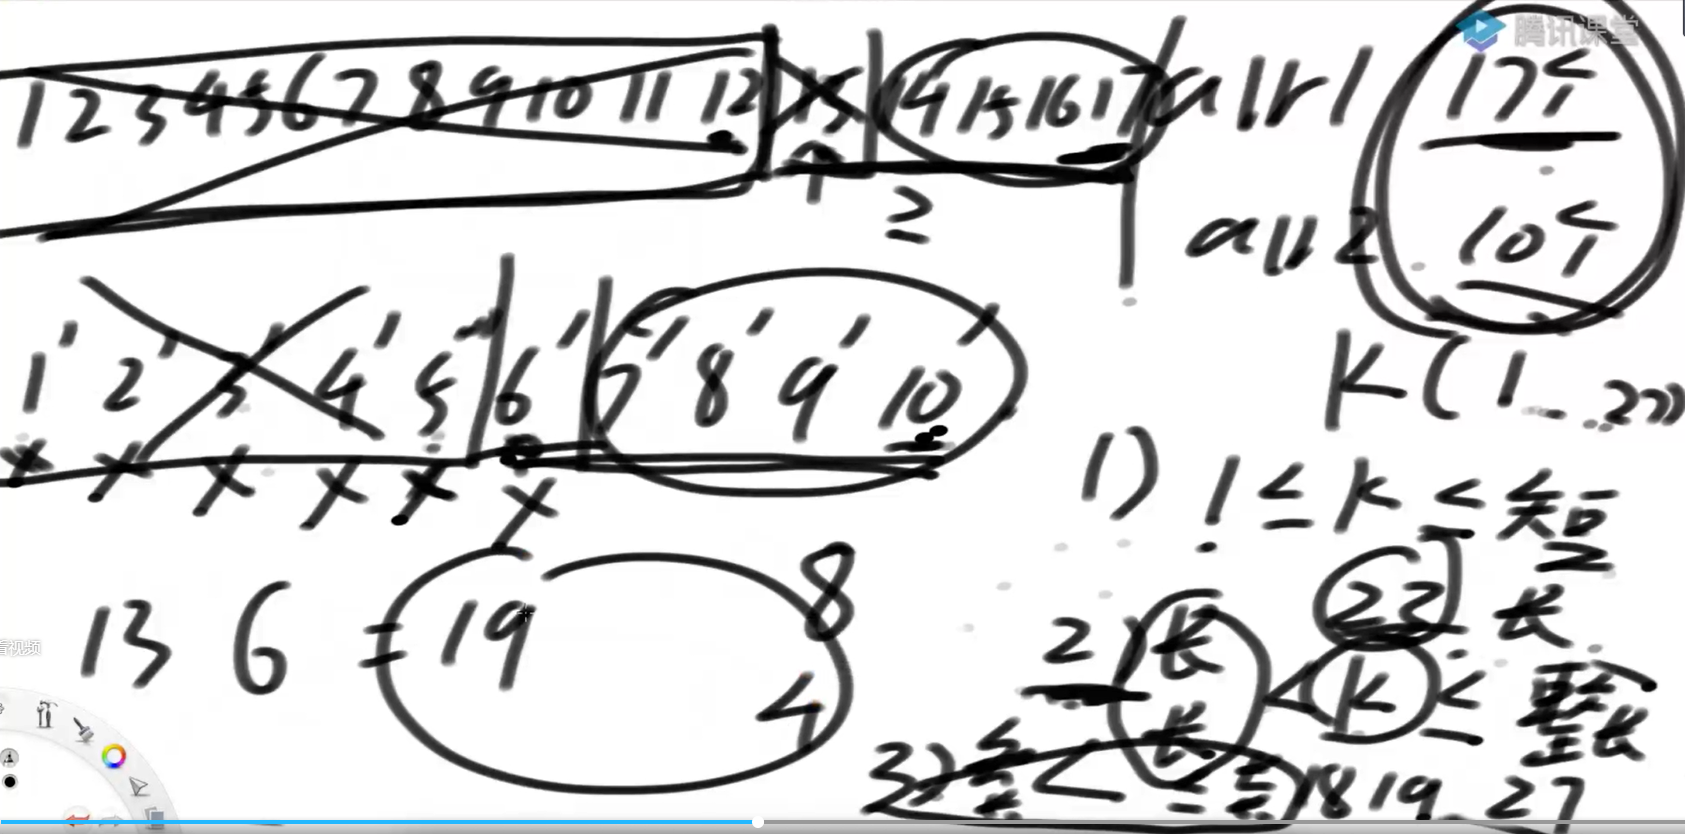 腾讯课堂
1 2 3 4 5 6 7 8 9 10 11 12 13 14 15 16 17 arr1 17个
2
arr2 10个
1' 2' 3' 4' 5' 6' 7' 8' 9' 10'
K (1...27)
1) 1 ≤ K ≤ 短
13 6 = 19 8
23 长
2) 长 < K ≤ 整长
4
看视频
3) 短 < ≤ 长 18 19 27